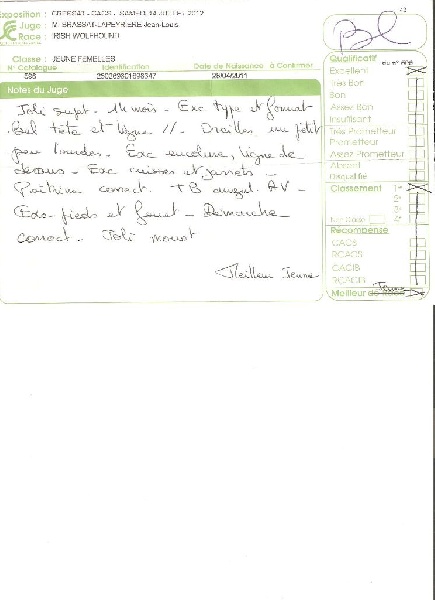 Exposition :
Juge : M. BRASSAT-LAPEYRIERE Jean-Louis,
Race : IRISH WOLFHOUND
Classe : JEUNE FEMELLES
N° Catalogue Identification Date de Naissance à Confirmer
Notes du Juge
Joli sujet - 14 mois - Exc type et format
Bel tête et ligne // - Oreilles un petit
peu lourdes - Exc encolure, ligne de
dessus - Exc cuisses et jarrets -
Poitrine correct - TB angul. AV -
Exc pieds et fouet - Démarche
correct - Joli mouvt
Meilleur Jeune
BL
Qualificatif
Excellent
Très Bon
Bon
Assez Bon
Insuffisant
Très Prometteur
Prometteur
Assez Prometteur
Absent
Disqualifié
Classement 1e
2e
3e
Récompense
CACS
RCACS
CACIB
RCACIB
Jeune
Meilleur de Race